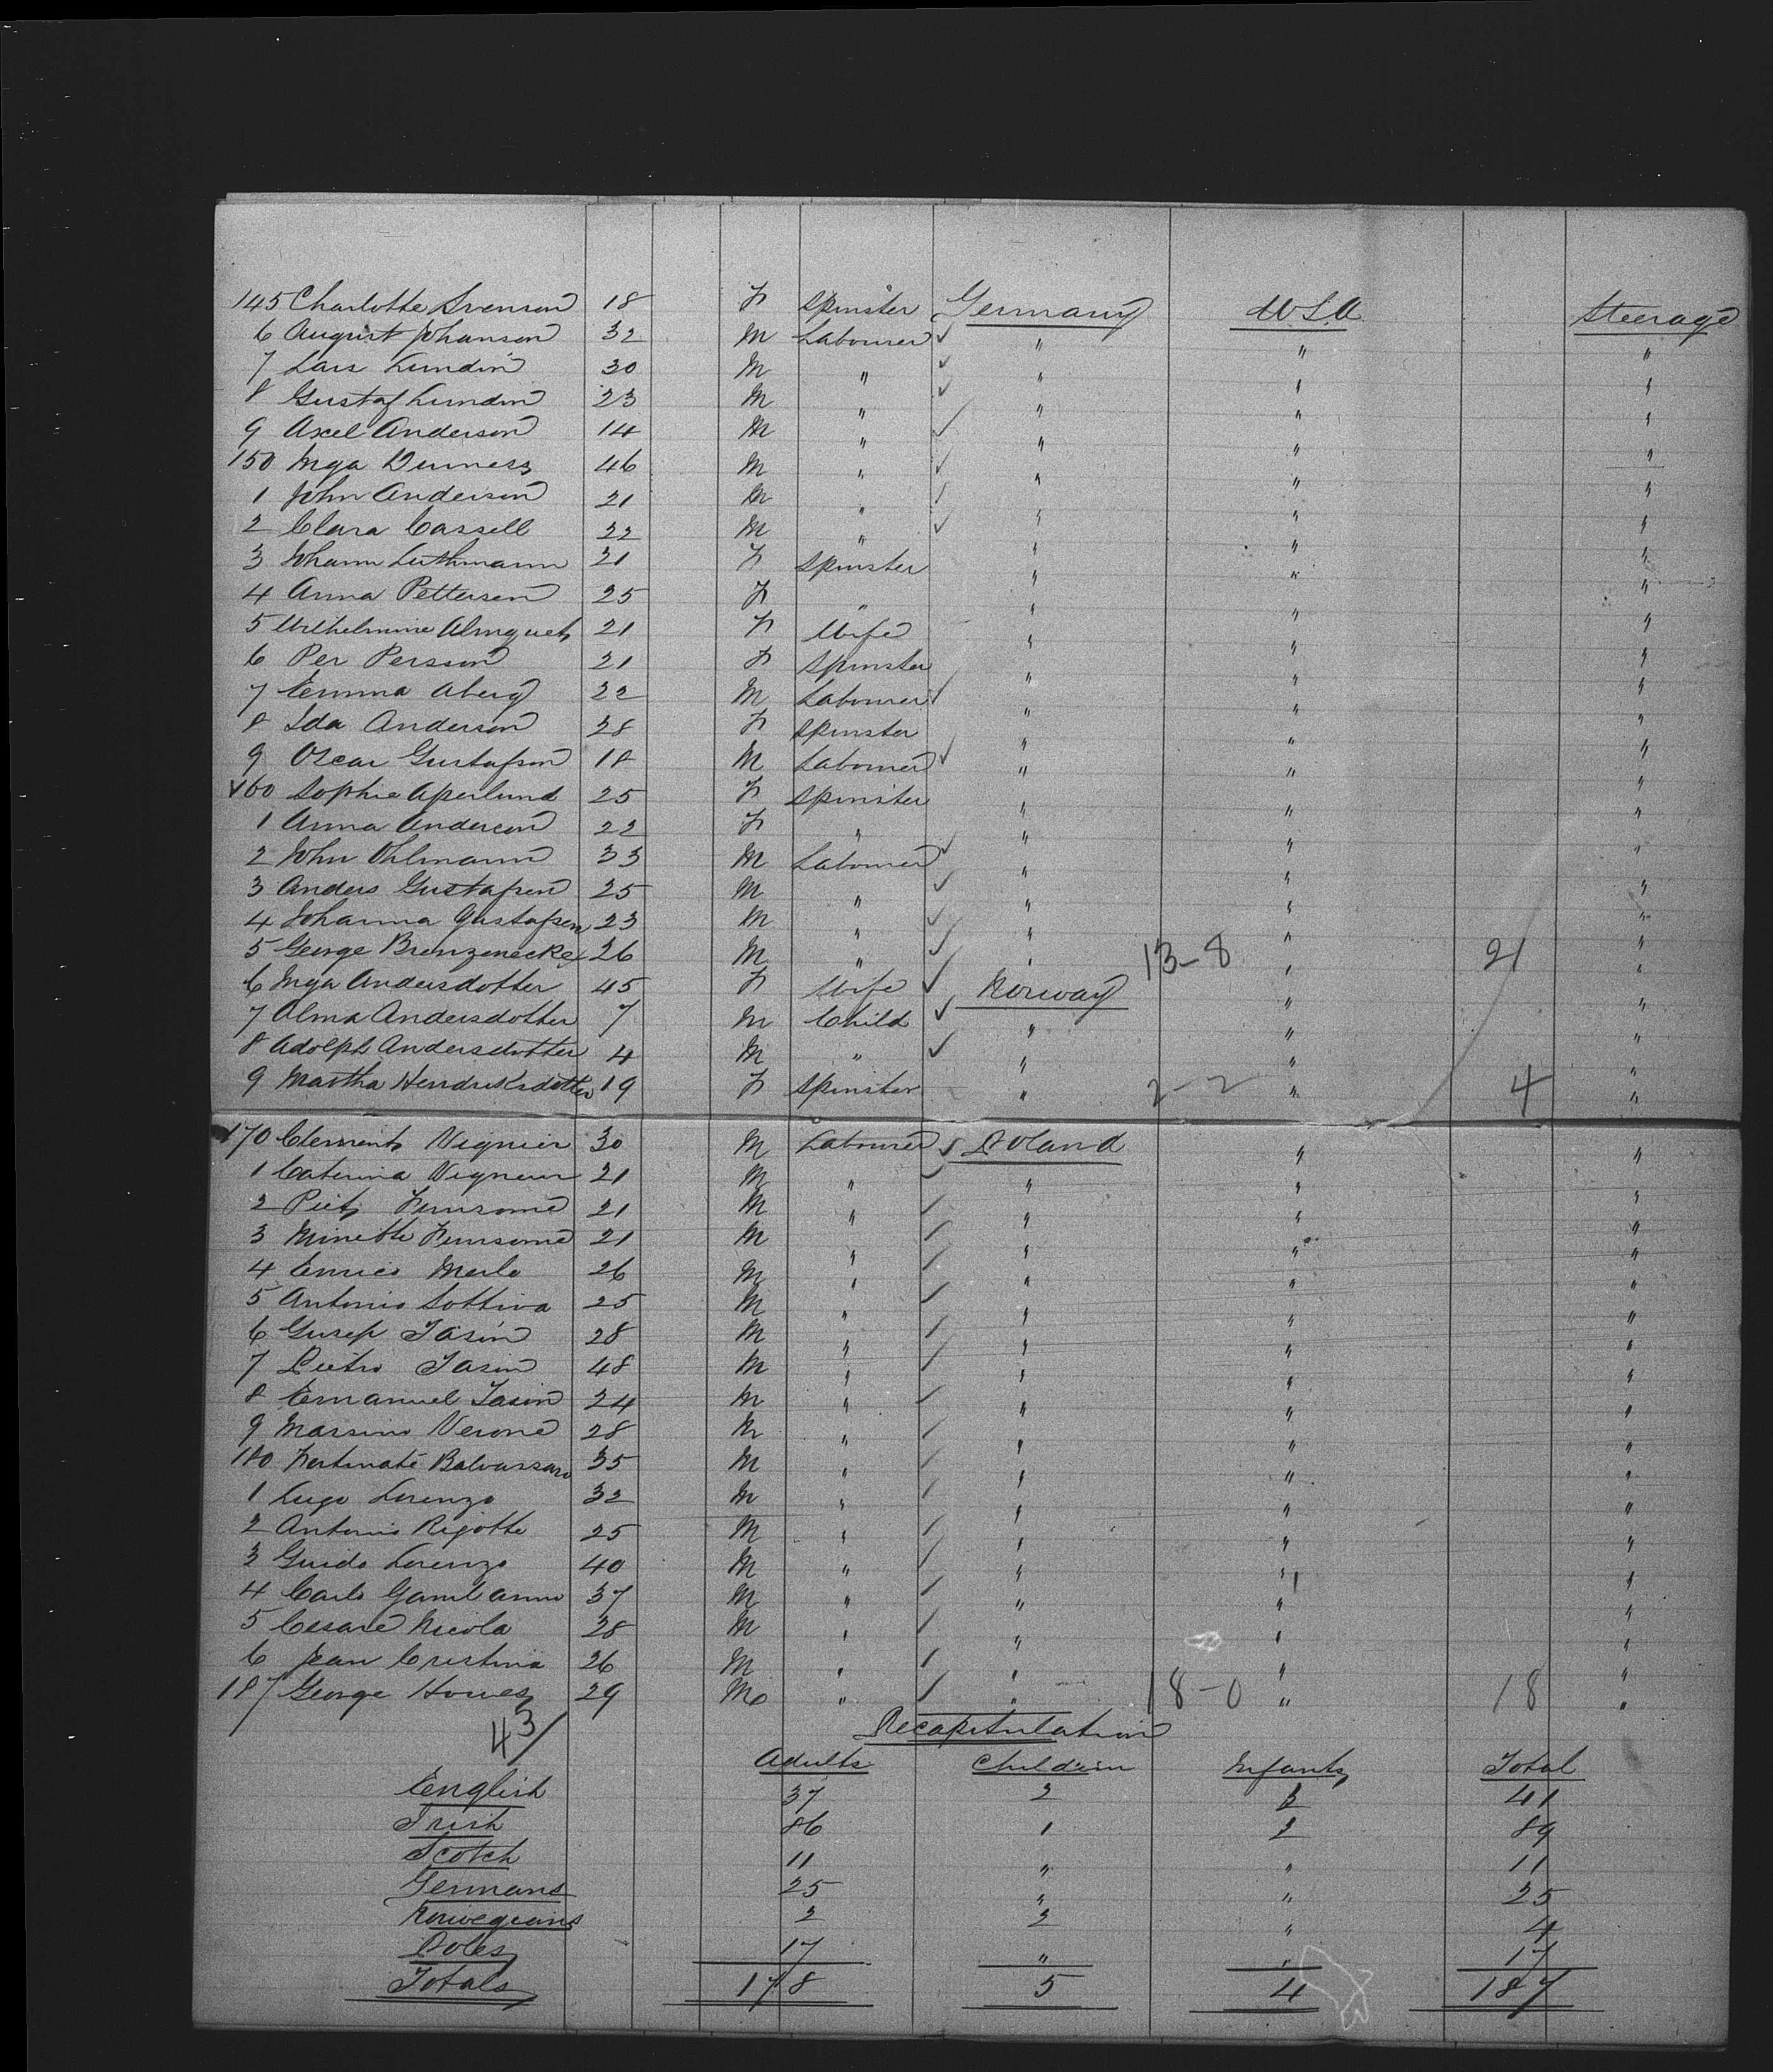 145 Charlotte Svenson 18 F Spinster Germany U.S.A. Steerage
6 August Johanson 32 M Labourer ✓ " " "
7 Lars Lundin 30 M " ✓ " " "
8 Gustaf Lundin 23 M " ✓ " " "
9 Axel Anderson 14 M " ✓ " " "
150 Inga 46 M " ✓ " " "
1 John Anderson 21 M " ✓ " " "
2 Clara Cassell 22 M " ✓ " " "
3 Johann Luthmann 21 F Spinster " " "
4 Anna Pettersen 25 F " " " "
5 Wilhelmine 21 F Wife " " "
6 Per Persson 21 F Spinster " " "
7 Emma Aberg 22 M Labourer ✓ " " "
8 Ida Anderson 28 F Spinster " " "
9 Oscar Gustafson 18 M Labourer ✓ " " "
160 Sophie Aperlund 25 F Spinster " " "
1 Anna Anderson 22 F " " " "
2 John Ohlmann 33 M Labourer ✓ " " "
3 Anders Gustafsen 25 M " ✓ " " "
4 Johanna Gustafsen 23 M " ✓ " " "
5 George Brenzenecke 26 M " ✓ " 13-8 " 21 "
6 Inga Andersdotter 45 F Wife ✓ Norway " "
7 Alma Andersdotter 7 M Child ✓ " " "
8 Adolph Andersdotter 4 M " ✓ " " "
9 Martha Hendriksdotter 19 F Spinster " 2-2 " 4 "
170 Clement Vignier 30 M Labourer ✓ Poland " "
1 Caterina Vigneur 21 M " ✓ " " "
2 Piet Funsome 21 M " ✓ " " "
3 Minette Funsome 21 M " ✓ " " "
4 Enrico Merlo 26 M " ✓ " " "
5 Antonio Sottiva 25 M " ✓ " " "
6 Gusep Tasin 28 M " ✓ " " "
7 Pietro Tasin 48 M " ✓ " " "
8 Emanuel Tasin 24 M " ✓ " " "
9 Massimo Verone 28 M " ✓ " " "
180 Fortinate Balvassaro 35 M " ✓ " " "
1 Lugo Lorenzo 32 M " ✓ " " "
2 Antonio Rigotte 25 M " ✓ " " "
3 Guido Lorenzo 40 M " ✓ " " "
4 Carlo 37 M " ✓ " " "
5 Cesare Nicola 28 M " ✓ " " "
6 Jean Cristina 26 M " ✓ " " "
187 George Howes 29 M " ✓ " 18-0 " 18 "
43/ Recapitulation
Adults Children Infants Total
English 37 2 2 41
Irish 86 1 2 89
Scotch 11 " " 11
Germans 25 " " 25
Norwegians 2 2 " 4
Poles 17 " " 17
Totals 178 5 4 187